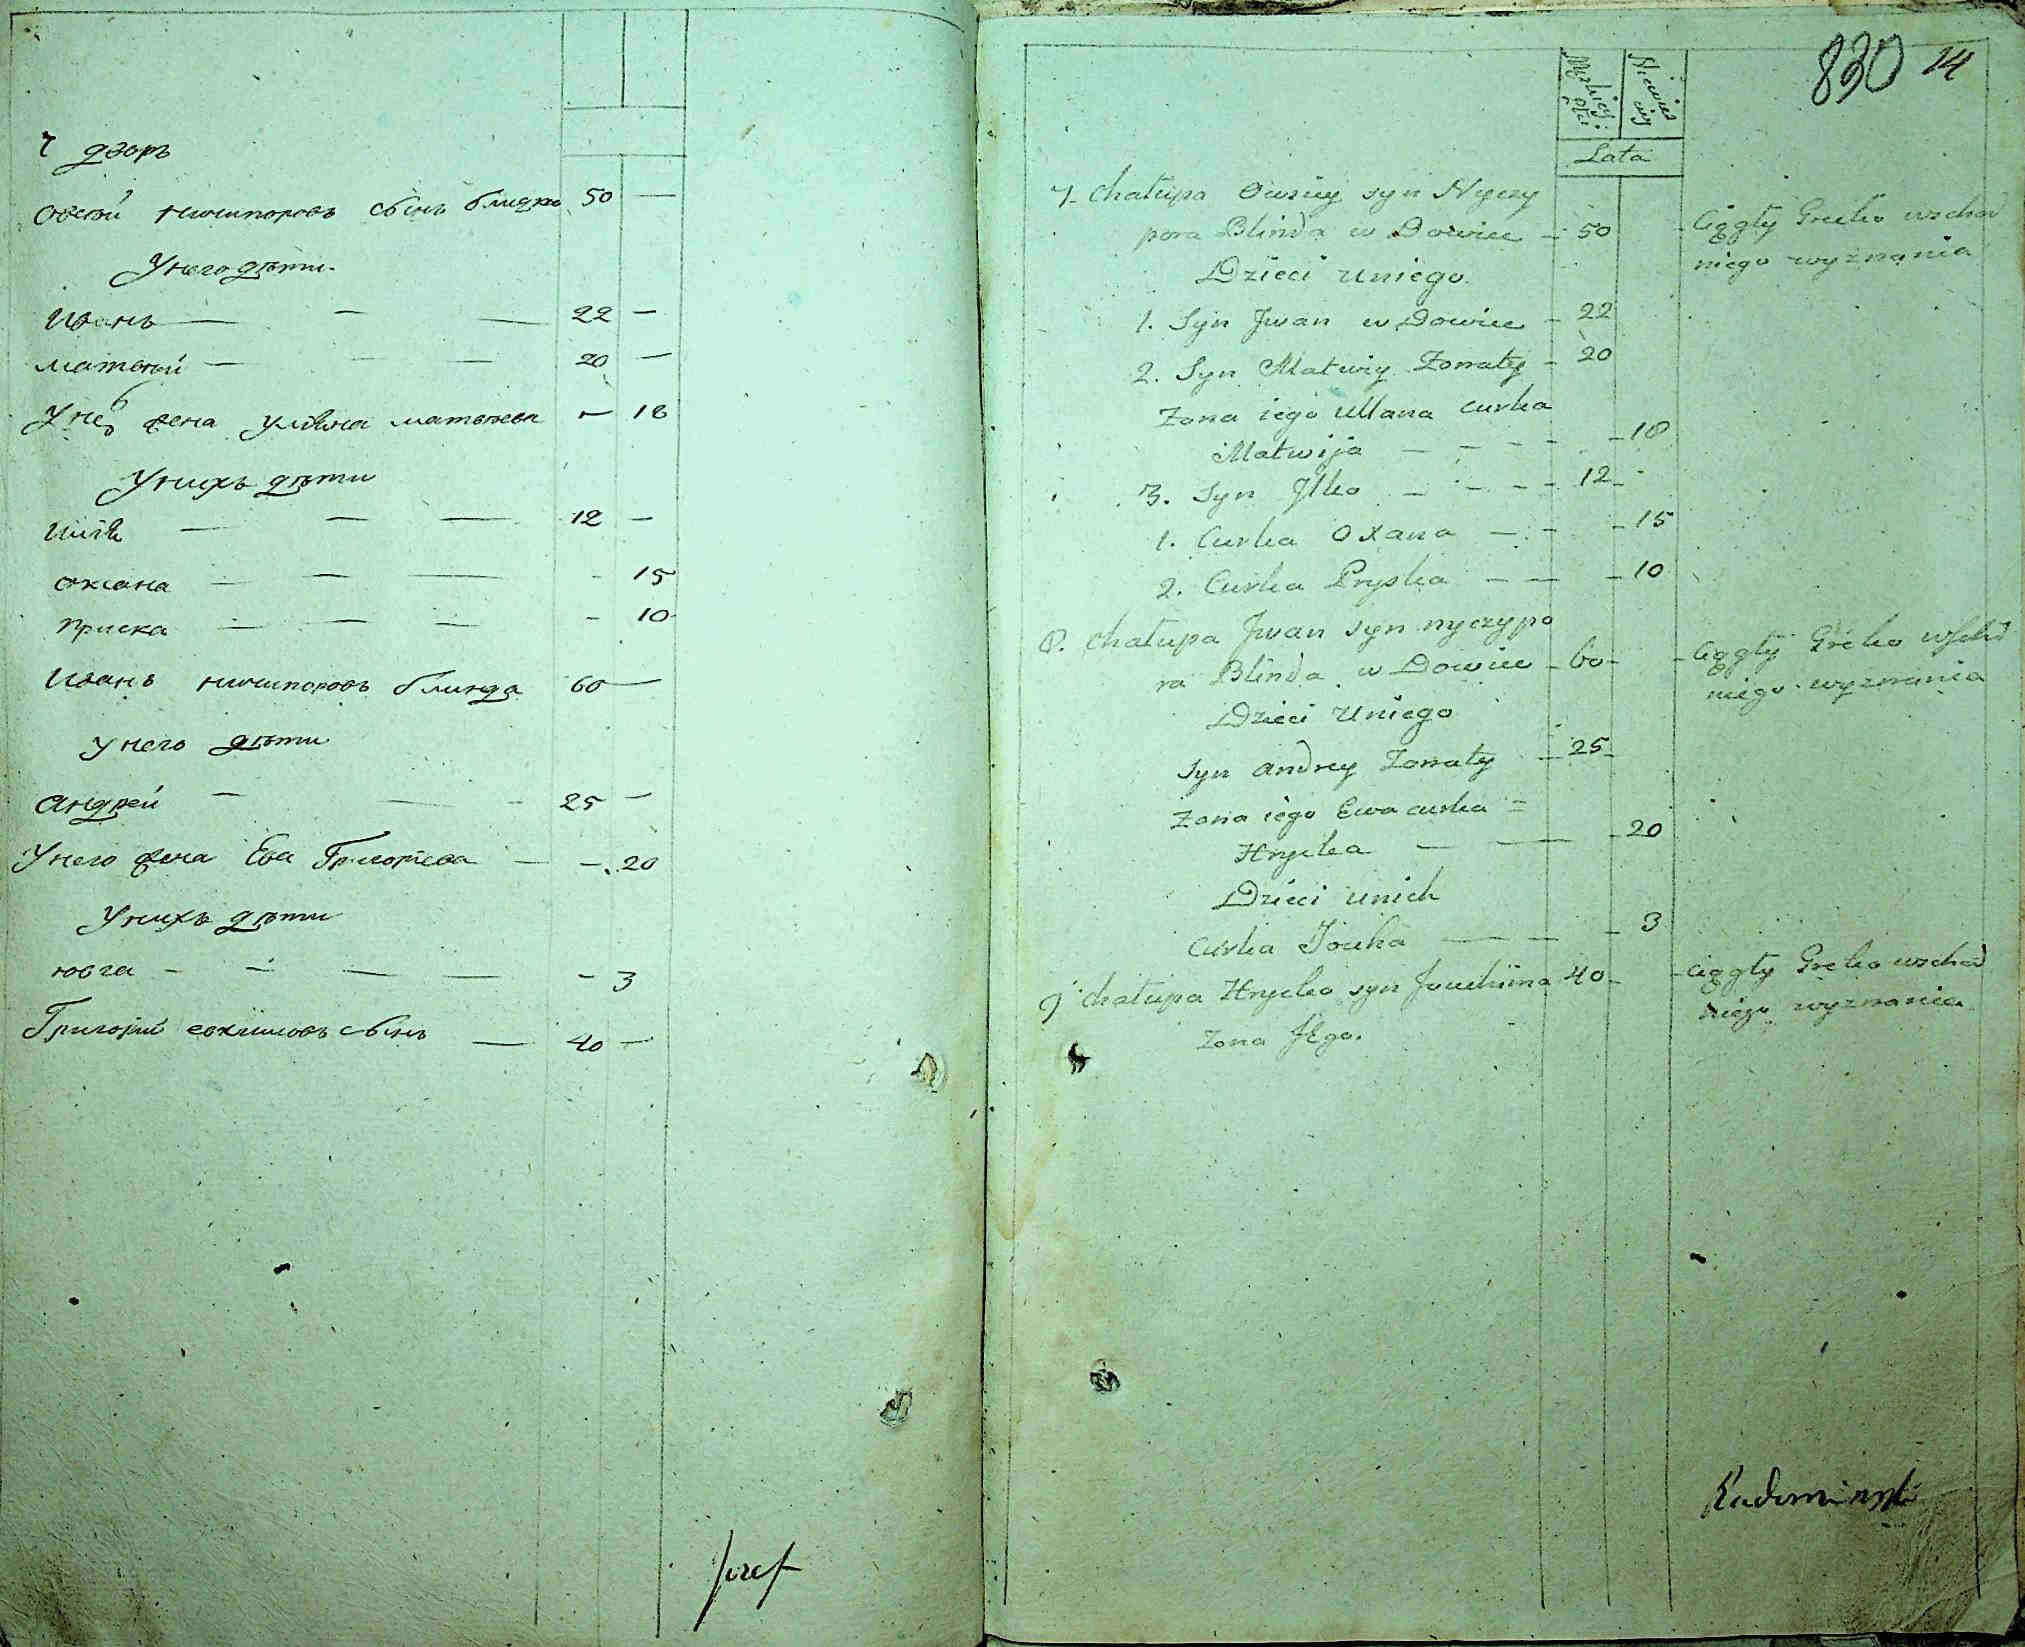 7 дворъ
Овсѣй Ничипоровъ сынъ блинда 50 —
У него дѣти
Иванъ — — — 22 —
матвѣй — — — 20 —
У него жена Уліяна матвѣева — 18
У нихъ дѣти
Илія — — — 12 —
оксана — — — - 15
приска — — — - 10
Иванъ ничипоровъ блинда 60 —
У него дѣти
Андрей — — - 25 —
У него жена Ева Григорѣева — — 20
У нихъ дѣти
ювга — — — — - 3
Григорій евхимовъ сынъ — 40 —
Jozef
830 14
Męzkiej płci
Niewieściej
Lata
7. Chałupa Owsiy syn Nyczy
pora Blinda w Dowiec - 50 - Ciągły Greko wschod
niego wyznania
Dzieci Uniego
1. Syn Jwan w Dowiec - 22
2. Syn Matwiy Zonaty - 20
Zona iego Ullana curka
Matwija — — - - - 18
3. Syn Jlko — - - - 12 -
1. Curka Oxana — - - - 15
2. Curka Pryska — — - 10
8. Chałupa Jwan syn nyczypo
ra Blinda w Dowiec - 60 - - Ciągły Greko wschod
niego wyznania
Dzieci Uniego
Syn Andrey Zonaty - 25 -
Zona iego Ewa curka =
Hrycka — — - 20
Dzieci unich
Curka Jouha — — - 3
9. Chałupa Hrycko syn Jouchima 40 - - Ciągły Greko wschod
niego wyznania
Zona JEgo.
Radominski